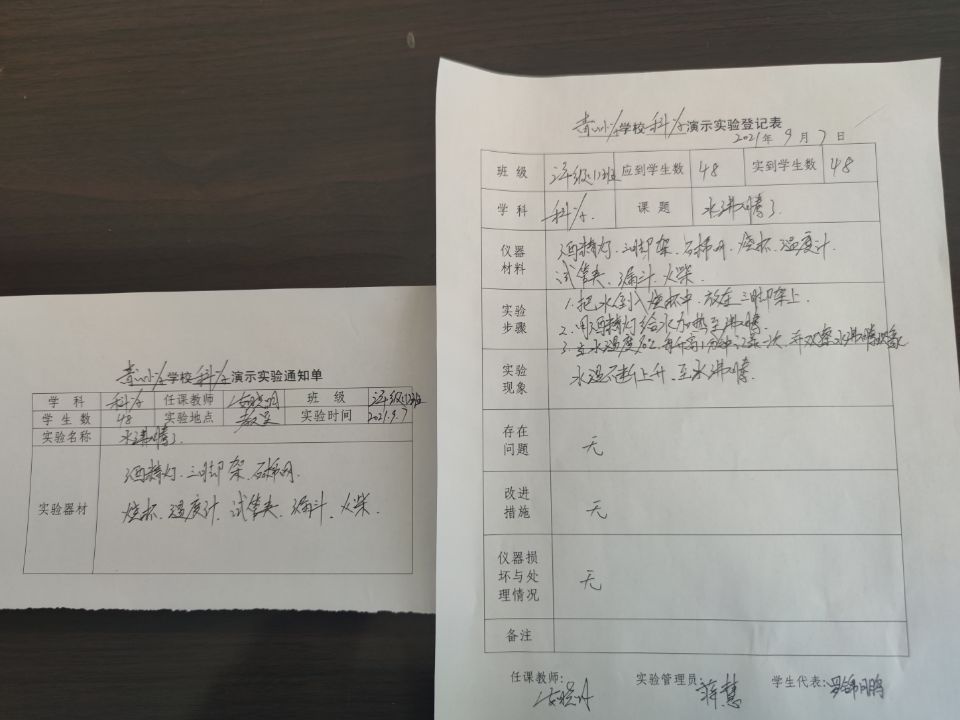 学校科学演示实验通知单
学科 科学 任课教师 班级 三年级(1)班
学生数 48 实验地点 教室 实验时间 2021.9.7
实验名称 水沸腾了
实验器材 酒精灯、三脚架、石棉网、
烧杯、温度计、试管夹、漏斗、火柴.
学校科学演示实验登记表
2021年9月7日
班级 三年级(1)班 应到学生数 48 实到学生数 48
学科 科学. 课题 水沸腾了
仪器材料 酒精灯、三脚架、石棉网、烧杯、温度计.
试管夹、漏斗、火柴.
实验步骤 1.把水倒入烧杯中,放在三脚架上.
2.用酒精灯给水加热至沸腾.
3.至水温度 每 1分钟记录一次,并观察水沸腾现象
实验现象 水温不断上升,至水沸腾.
存在问题 无
改进措施 无
仪器损坏与处理情况 无
备注
任课教师: 实验管理员:蒋慧 学生代表: